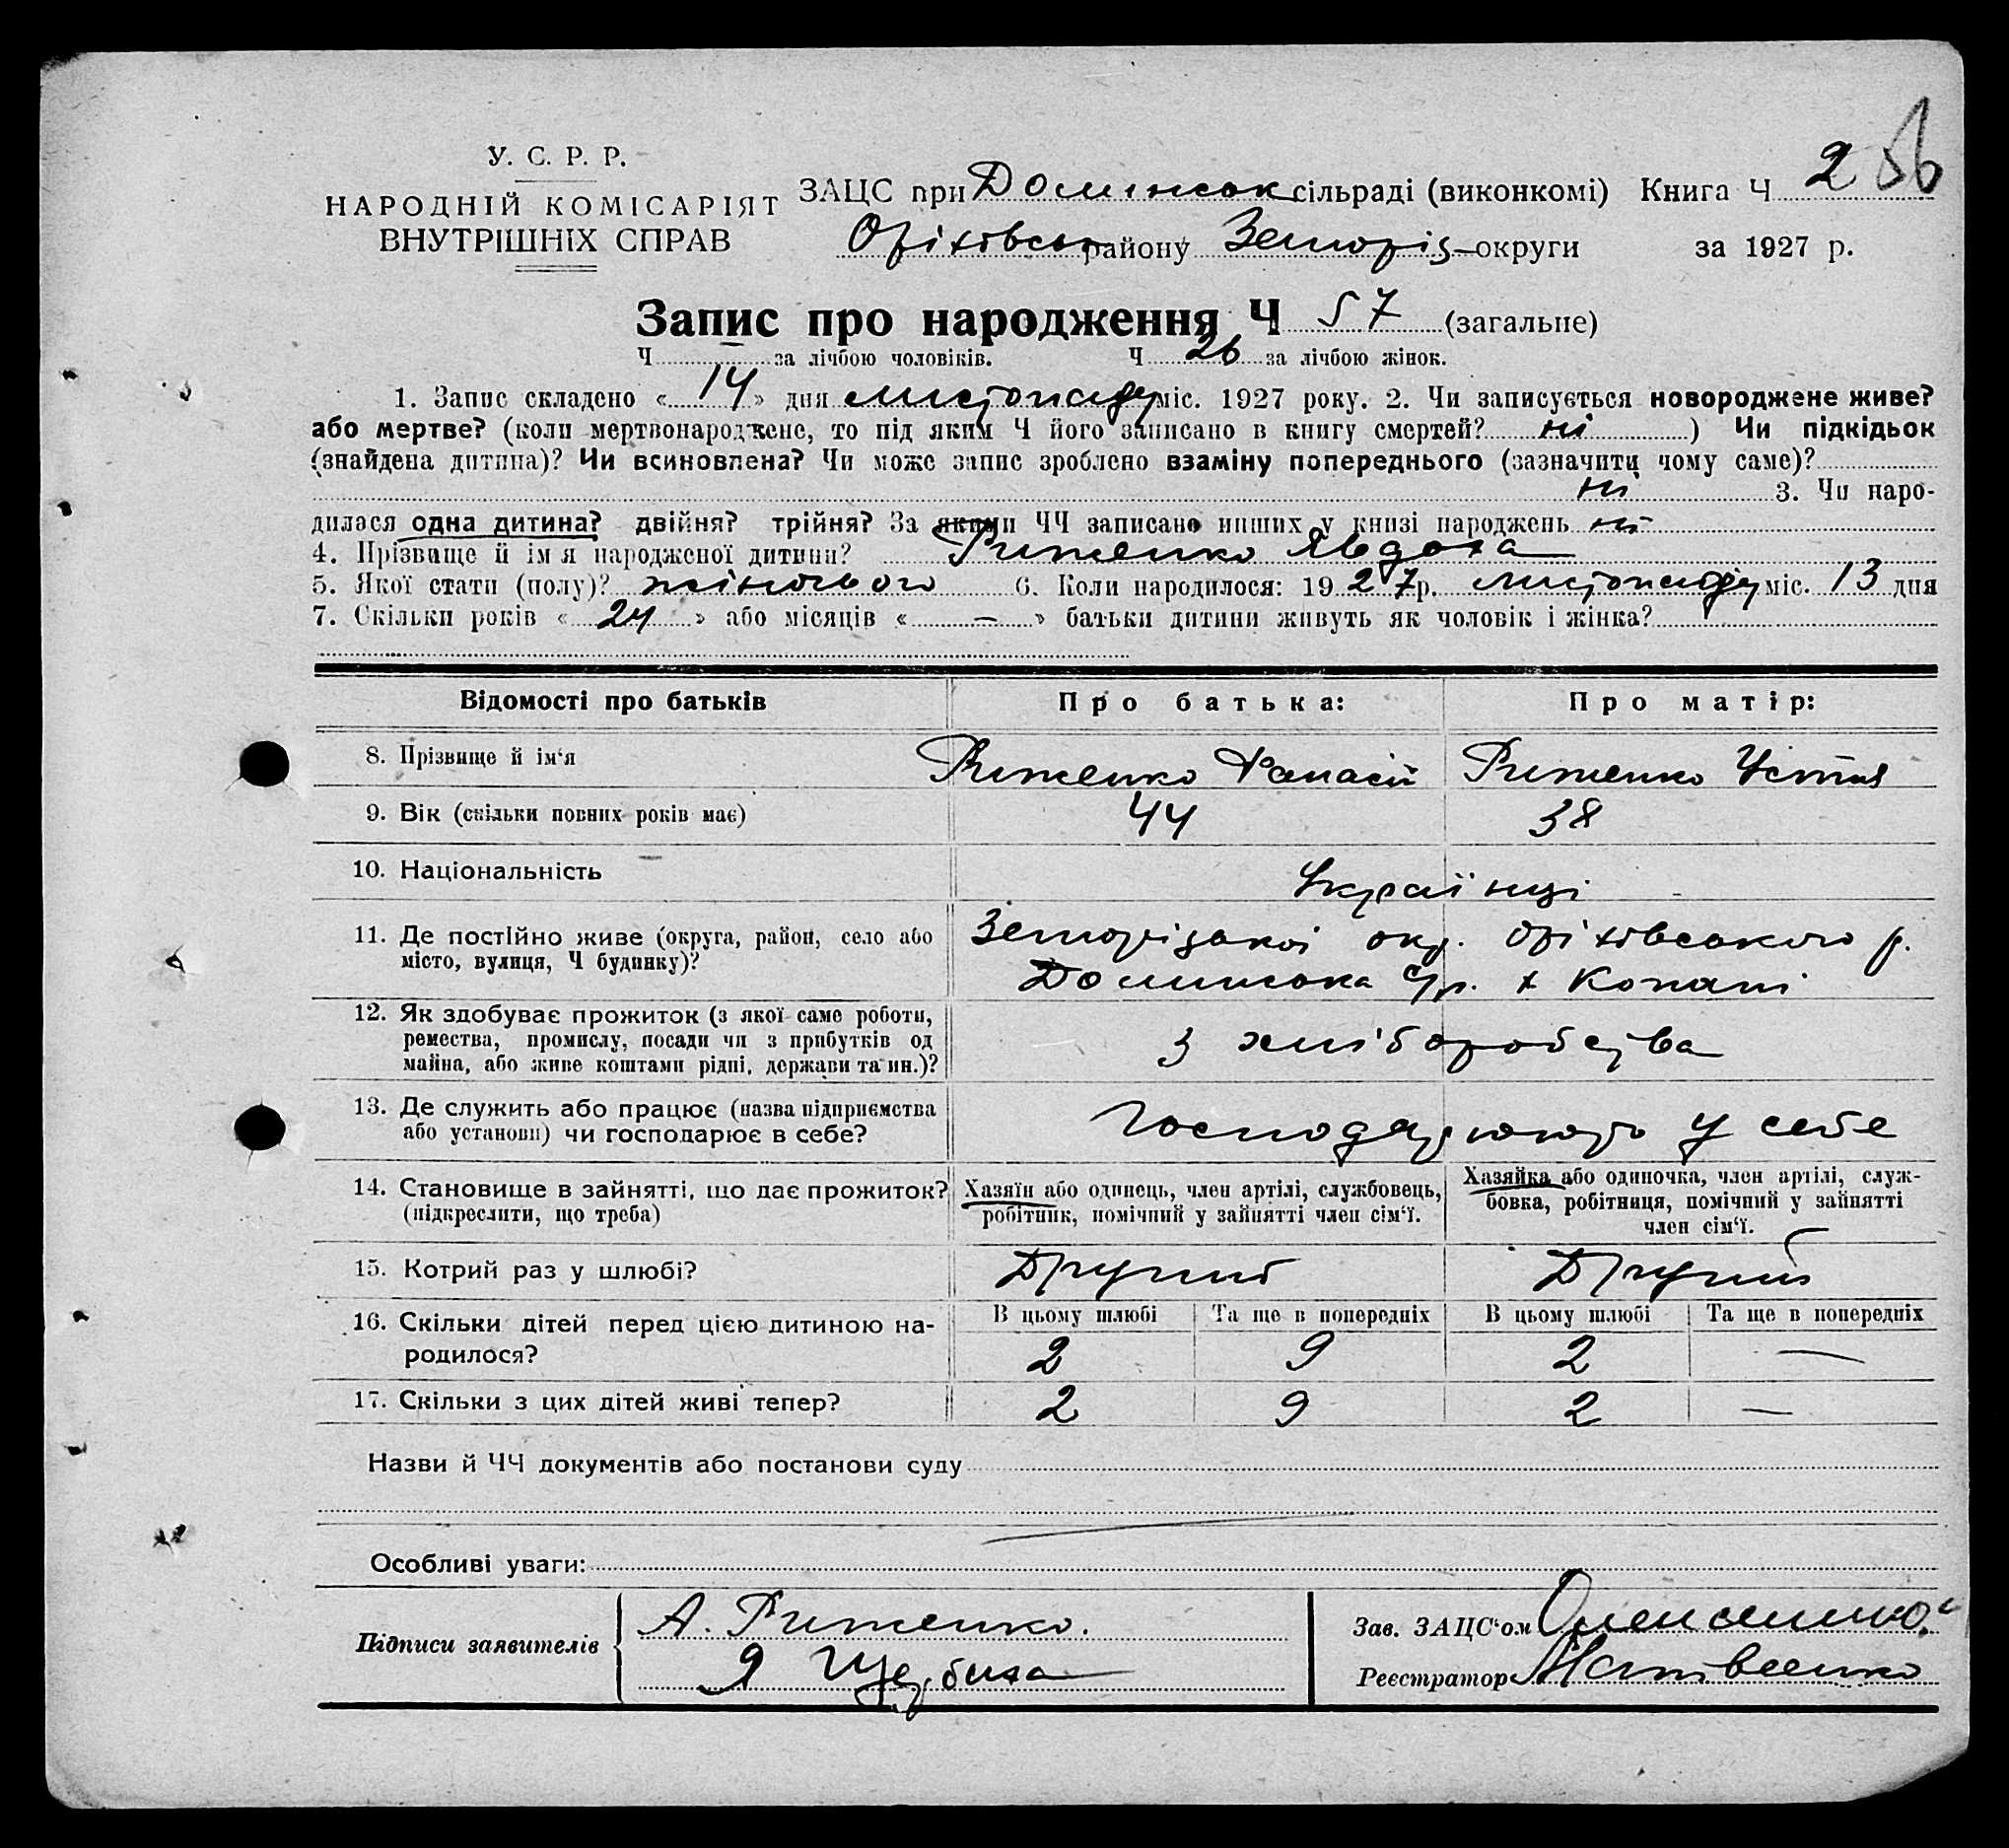 У. С. Р. Р.
НАРОДНІЙ КОМІСАРІЯТ
ВНУТРІШНІХ СПРАВ
ЗАЦС при Долинськ сільраді (виконкомі) Книга Ч 2 56
Оріхівськ району Запоріз округи за 1927 р.
Запис про народження Ч 57 (загальне)
Ч — за лічбою чоловіків. Ч 26 за лічбою жінок.
1. Запис складено « 14 » дня листопаду міс. 1927 року. 2. Чи записується новороджене живе?
або мертве? (коли мертвонароджене, то під яким Ч його записано в книгу смертей? ні ) Чи підкідьок
(знайдена дитина)? Чи всиновлена? Чи може запис зроблено взаміну попереднього (зазначити чому саме)?
ні 3. Чи наро-
дилася одна дитина? двійня? трійня? За якими ЧЧ записано инших у книзі народжень ні
4. Прізвище й ім'я народженої дитини? Риженко Явдоха
5. Якої стати (полу)? жіночого 6. Коли народилося: 1927 р. листопаду міс. 13 дня
7. Скільки років « 24 » або місяців « — » батьки дитини живуть як чоловік і жінка?
Відомості про батьків Про батька: Про матір:
8. Прізвище й ім'я Риженко Панасій Риженко Устия
9. Вік (скільки повних років має) 44 38
10. Національність Українці
11. Де постійно живе (округа, район, село або
місто, вулиця, Ч будинку)?
Запорізької окр. Оріхівського р.
Долинська с/р. х Копані
12. Як здобуває прожиток (з якої саме роботи,
ремества, промислу, посади чи з прибутків од
майна, або живе коштами рідні, держави та ин.)?
з хліборобства
13. Де служить або працює (назва підприємства
або установи) чи господарює в себе?
Господарюють у себе
14. Становище в зайнятті, що дає прожиток?
(підкреслити, що треба)
Хазяїн або одинець, член артілі, службовець,
робітник, помічний у зайнятті член сім'ї.
Хазяйка або одиночка, член артілі, служ-
бовка, робітниця, помічний у зайнятті
член сім'ї.
15. Котрий раз у шлюбі? Другий Другий
16. Скільки дітей перед цією дитиною на-
родилося?
В цьому шлюбі Та ще в попередніх В цьому шлюбі Та ще в попередніх
2 9 2 —
17. Скільки з цих дітей живі тепер? 2 9 2 —
Назви й ЧЧ документів або постанови суду
Особливі уваги:
Підписи заявителів
А. Риженко.
Я Щербина
Зав. ЗАЦС'ом
Реєстратор Матвеенко